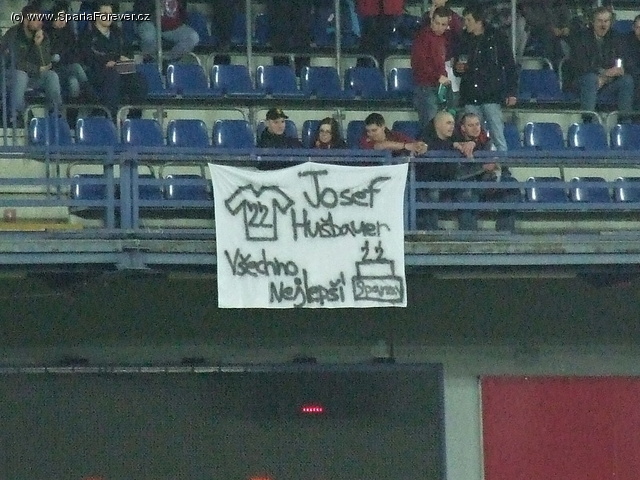 (c) www.SpartaForever.cz
22
Josef
Hušbauer
Všechno
Nejlepší
22